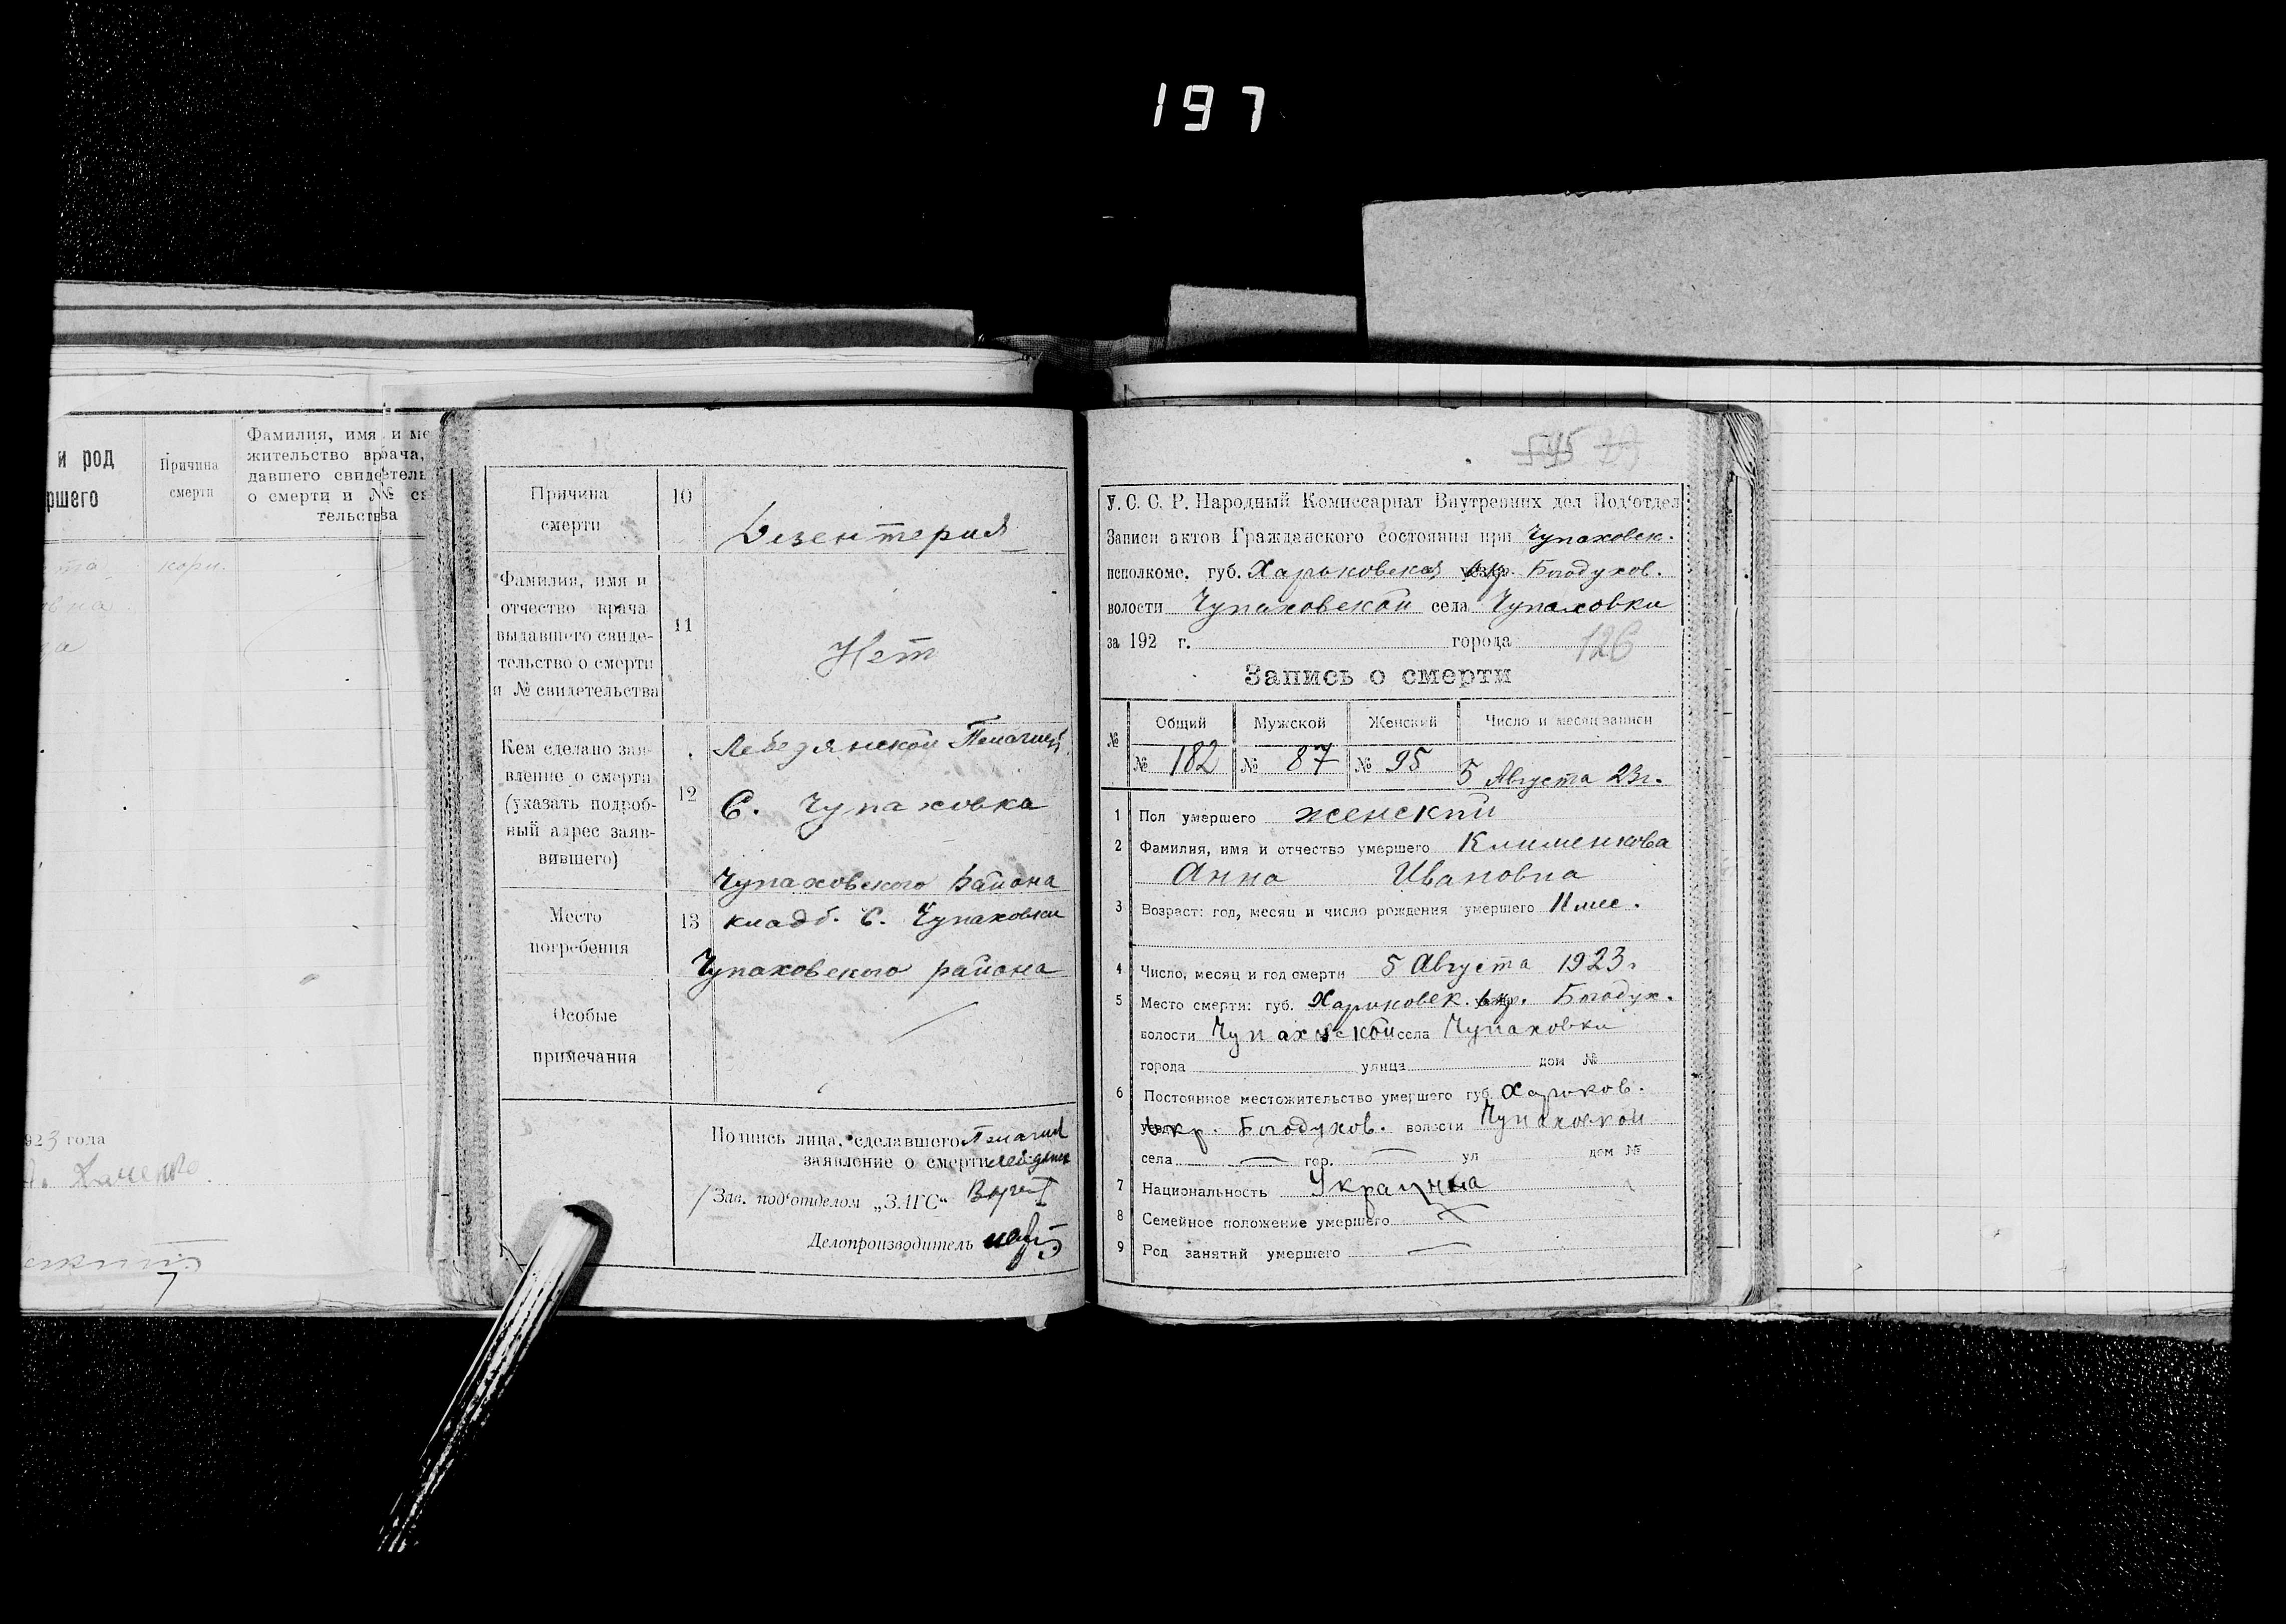 197
и род
ршего
Причина
смерти
Фамилия, имя и ме
жительство врача,
давшего свидетель
о смерти и №№ св
тельства
кори.
923 года
Причина
смерти
10
Дизентерия
Фамилия, имя и
отчество врача
выдавшего свиде-
тельство о смерти
и № свидетельства
11
Нет
Кем сделано зая-
вление о смерти
(указать подроб-
ный адрес заяв-
вившего)
12
Лебедянской Пелагией
С. Чупаховка
Чупаховского района
Место
погребения
13
кладб. С. Чупаховки
Чупаховского района
Особые
примечания
Подпись лица, сделавшего Пелагия
заявление о смерти
Зав. под‘отделом „ЗАГС“
Делопроизводитель
545
У. С. С. Р. Народный Комиссариат Внутренних дел Под‘отдел
Записи актов Гражданского состояния при Чупаховск.
исполкоме. губ. Харьковская окр. Богодухов.
волости Чупаховской села Чупаховки
за 192 г. города
126
Запись о смерти
№ Общий Мужской Женский Число и месяц записи
№ 182 № 87 № 95 5 Августа 23г.
1 Пол умершего женский
2 Фамилия, имя и отчество умершего Клименкова
Анна Ивановна
3 Возраст: год, месяц и число рождения умершего 11 мес.
4 Число, месяц и год смерти 5 Августа 1923г
5 Место смерти: губ. Харьковск. окр. Богодух.
волости Чупаховской села Чупаховки
города улица дом №
6 Постоянное местожительство умершего губ. Харьков.
окр. Богодухов. волости Чупаховской
села — гор. — ул дом №
7 Национальность Украинка
8 Семейное положение умершего
9 Род занятий умершего —